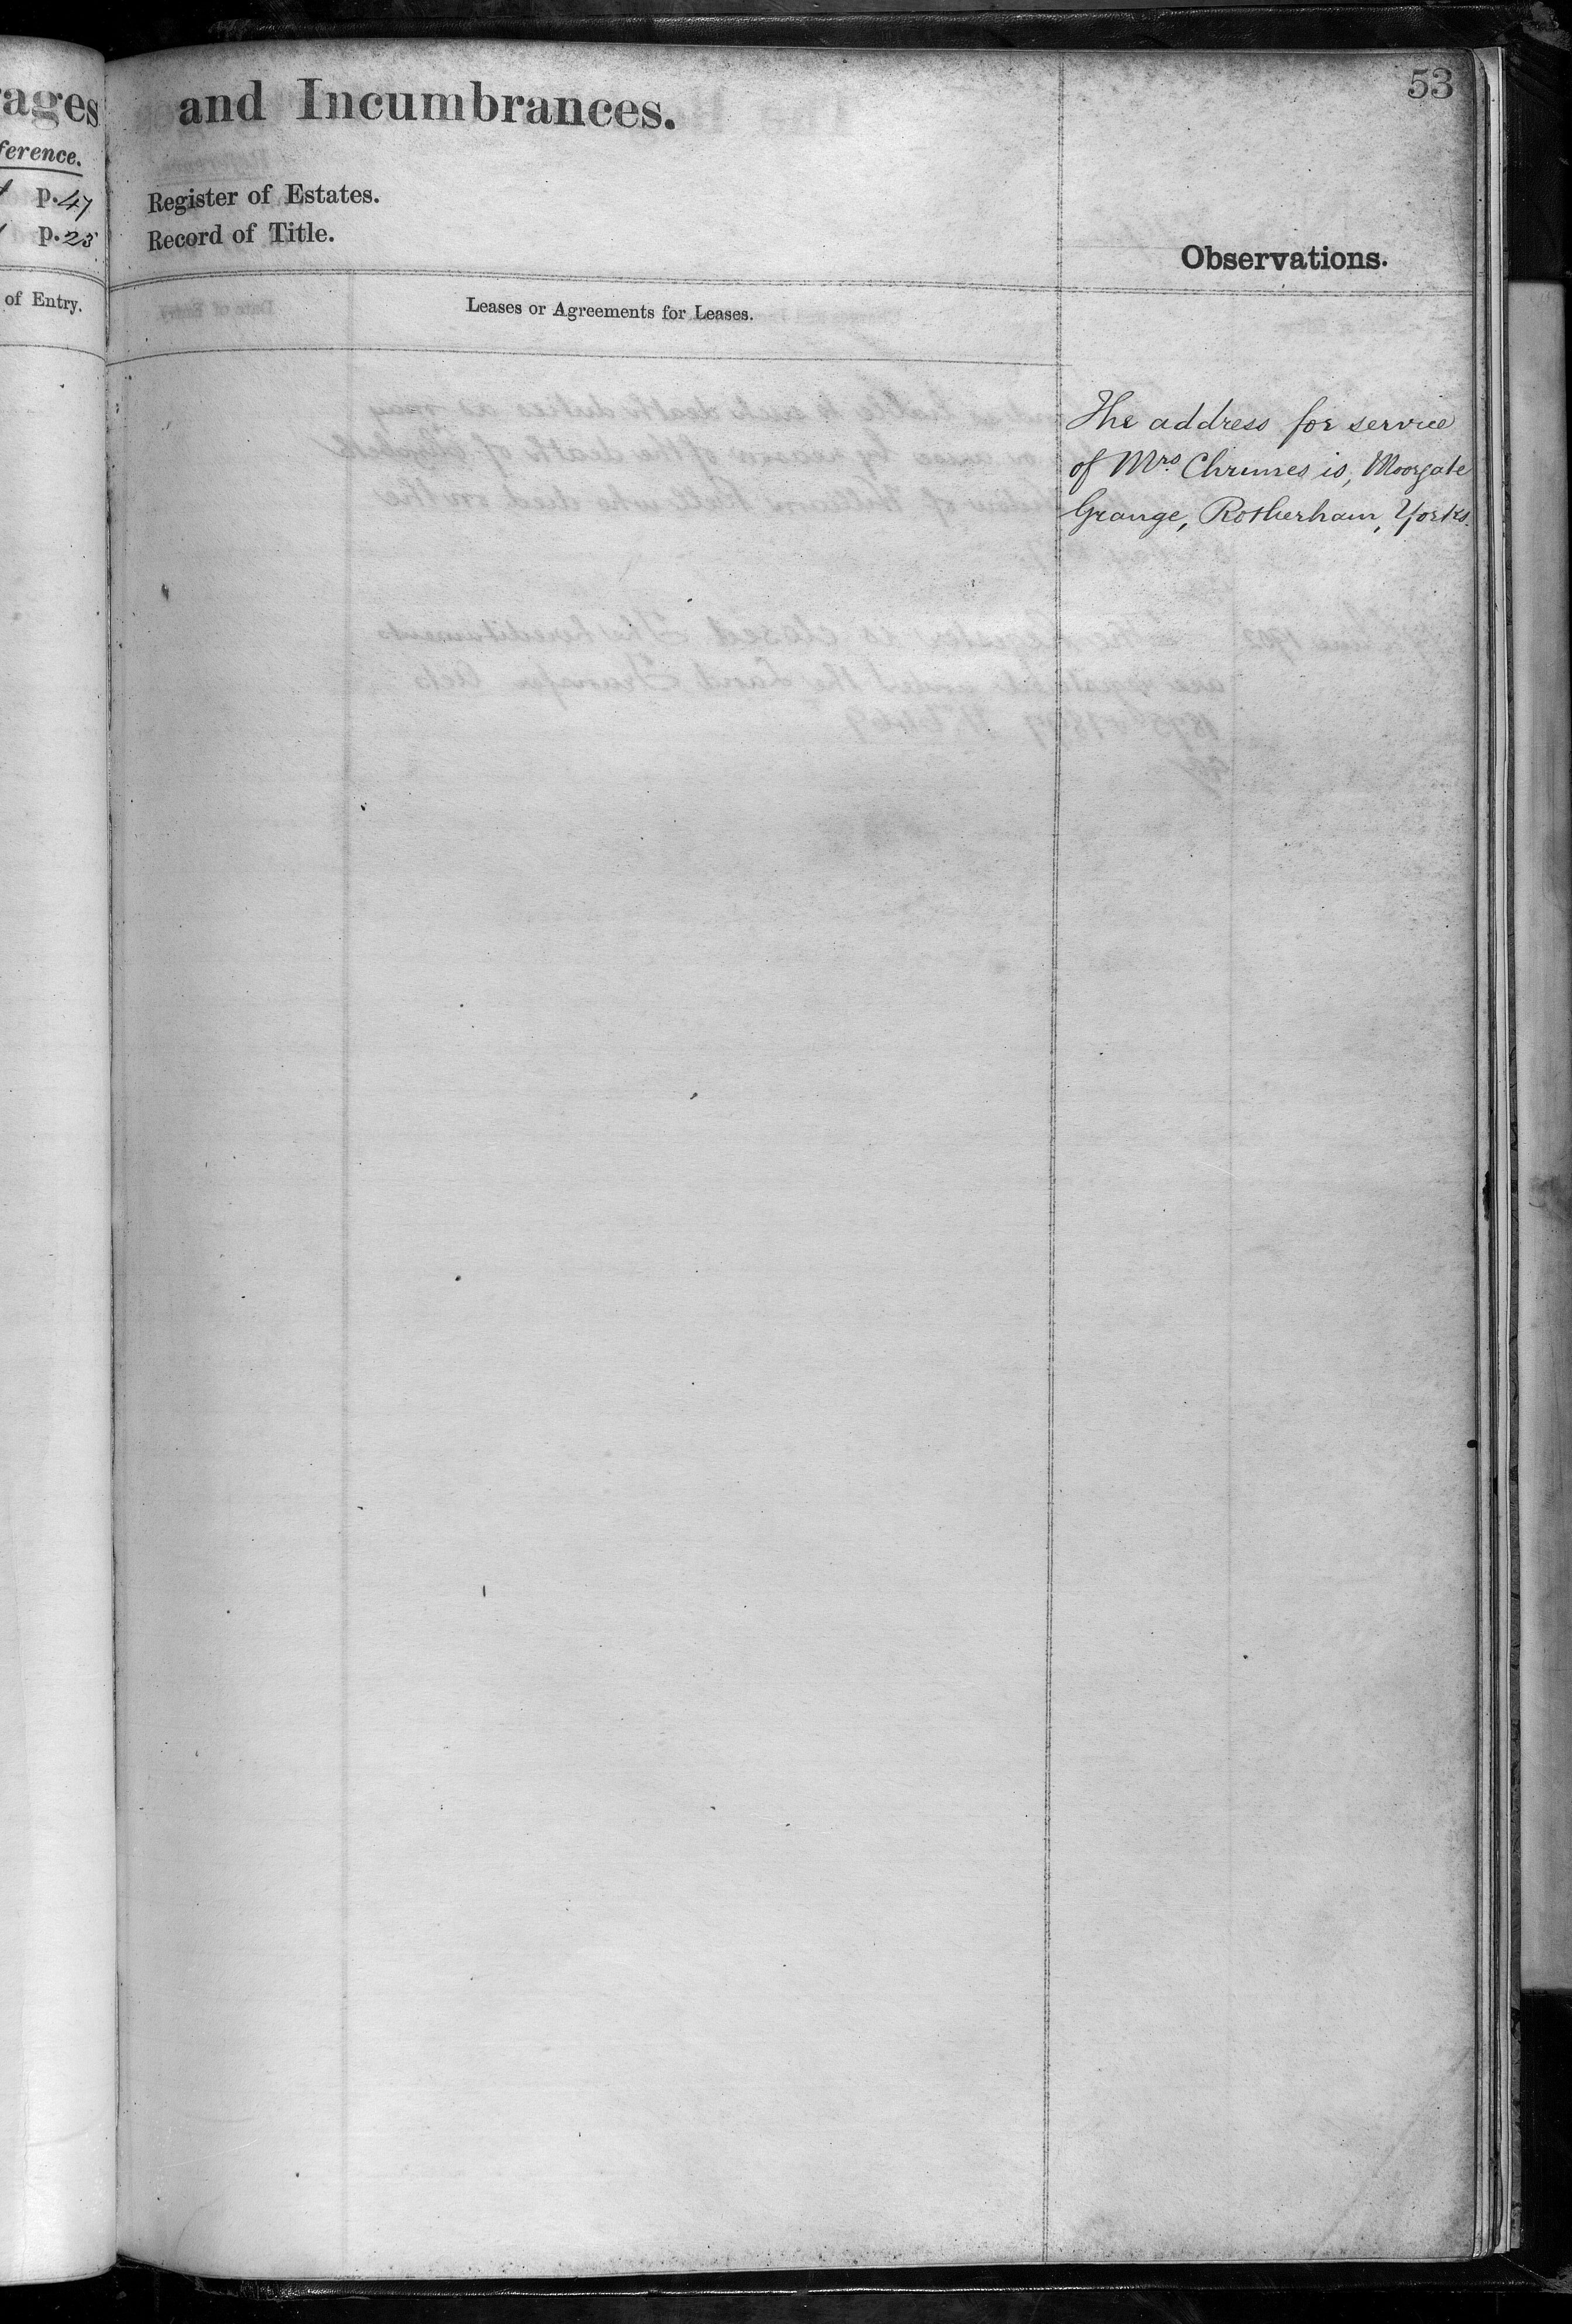 53
and Incumbrances.
Register of Estates.
Record of Title.
Observations.
Leases or Agreements for Leases.
The address for service
of Mrs. Chrimes is, Moorgate
Grange, Rotherham, Yorks.
ages
ference.
p. 47
p. 25
of Entry.